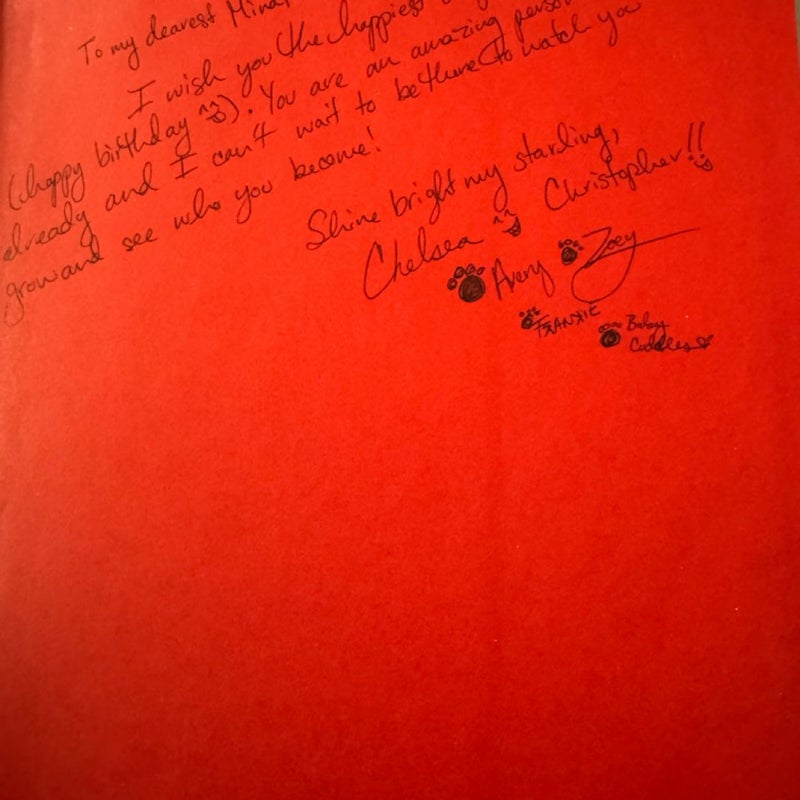 To my dearest Mina,
I wish you the happiest
(happy birthday). You are an amazing person
already and I can't wait to be there to watch you
grow and see who you become!
Shine bright my starling,
Chelsea Christopher!!
Avery Zoey
FRANKIE Baby
Cuddles